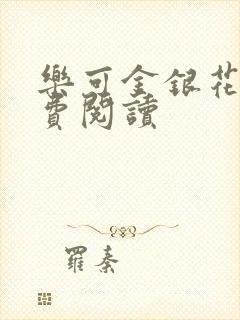 樂可金銀花
費閱讀
羅秦